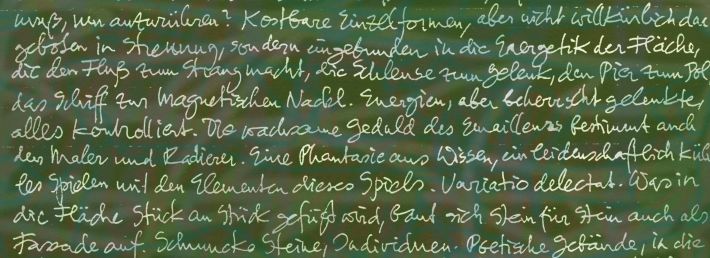 muß, um aufzurühren? Kostbare Einzelformen, aber nicht willkürlich dar
geboten in Streuung, sondern eingebunden in die Energetik der Fläche,
die den Fluß zum Strang macht, die Schleuse zum Gelenk, den Pier zum Pol,
das Schiff zur magnetischen Nadel. Energien, aber beherrscht gelenkte,
alles kontrolliert. Die wachsame Geduld des Emailleurs bestimmt auch
den Maler und Radierer. Eine Phantasie aus Wissen, ein leidenschaftlich küh
les Spielen mit den Elementen dieses Spiels. Variatio delectat. Was in
die Fläche Stück an Stück gefügt wird, baut sich Stein für Stein auch als
Fassade auf. Schmucke Steine, Individuen. Poetische Gebäude, in die